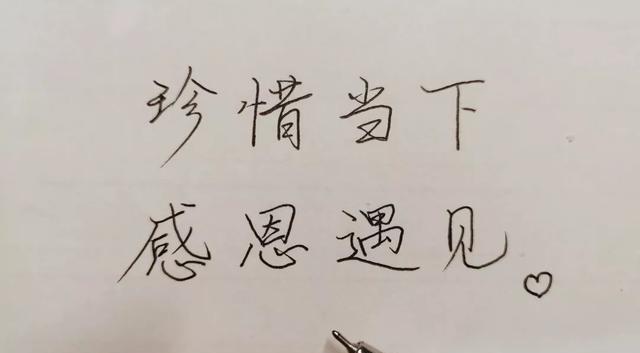 珍惜当下
感恩遇见。♡